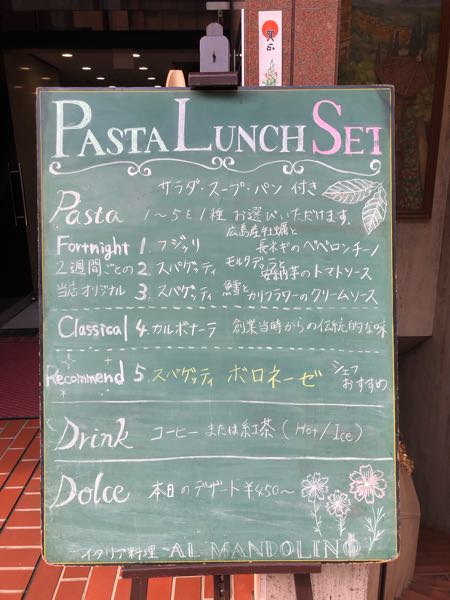 賀正
PASTA LUNCH SET
サラダ・スープ・パン 付き
Pasta 1〜5を1種 お選びいただけます。
Fortnight 1. フジッリ 広島産牡蠣と長ネギのペペロンチーノ
2週間ごとの 2. スパゲッティ モルタデッラと安納芋のトマトソース
当店オリジナル 3. スパゲッティ 鱈とカリフラワーのクリームソース
Classical 4. カルボナーラ 創業当時からの伝統的な味
Recommend 5. スパゲッティ ボロネーゼ シェフおすすめ
Drink コーヒー または 紅茶 (Hot/Ice)
Dolce 本日のデザート ¥450〜
イタリア料理 AL MANDOLINO